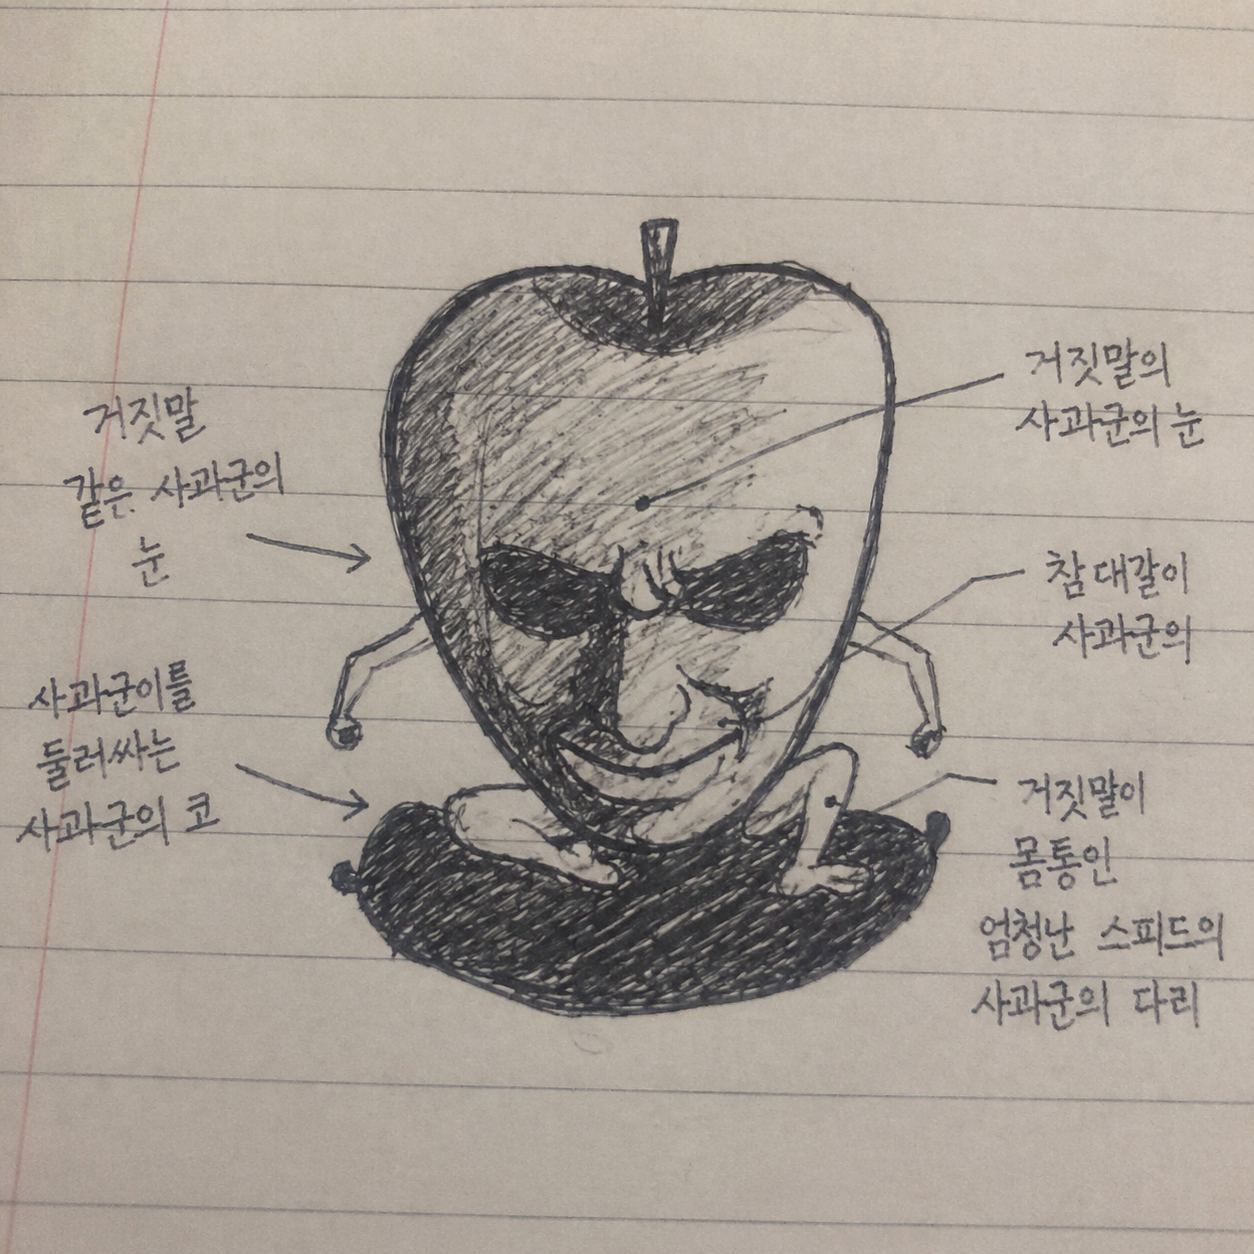 거짓말
같은 사과군의
눈
사과군이를
둘러싸는
사과군의 코
거짓말의
사과군의 눈
참 대갈이
사과군의
거짓말이
몸통인
엄청난 스피드의
사과군의 다리